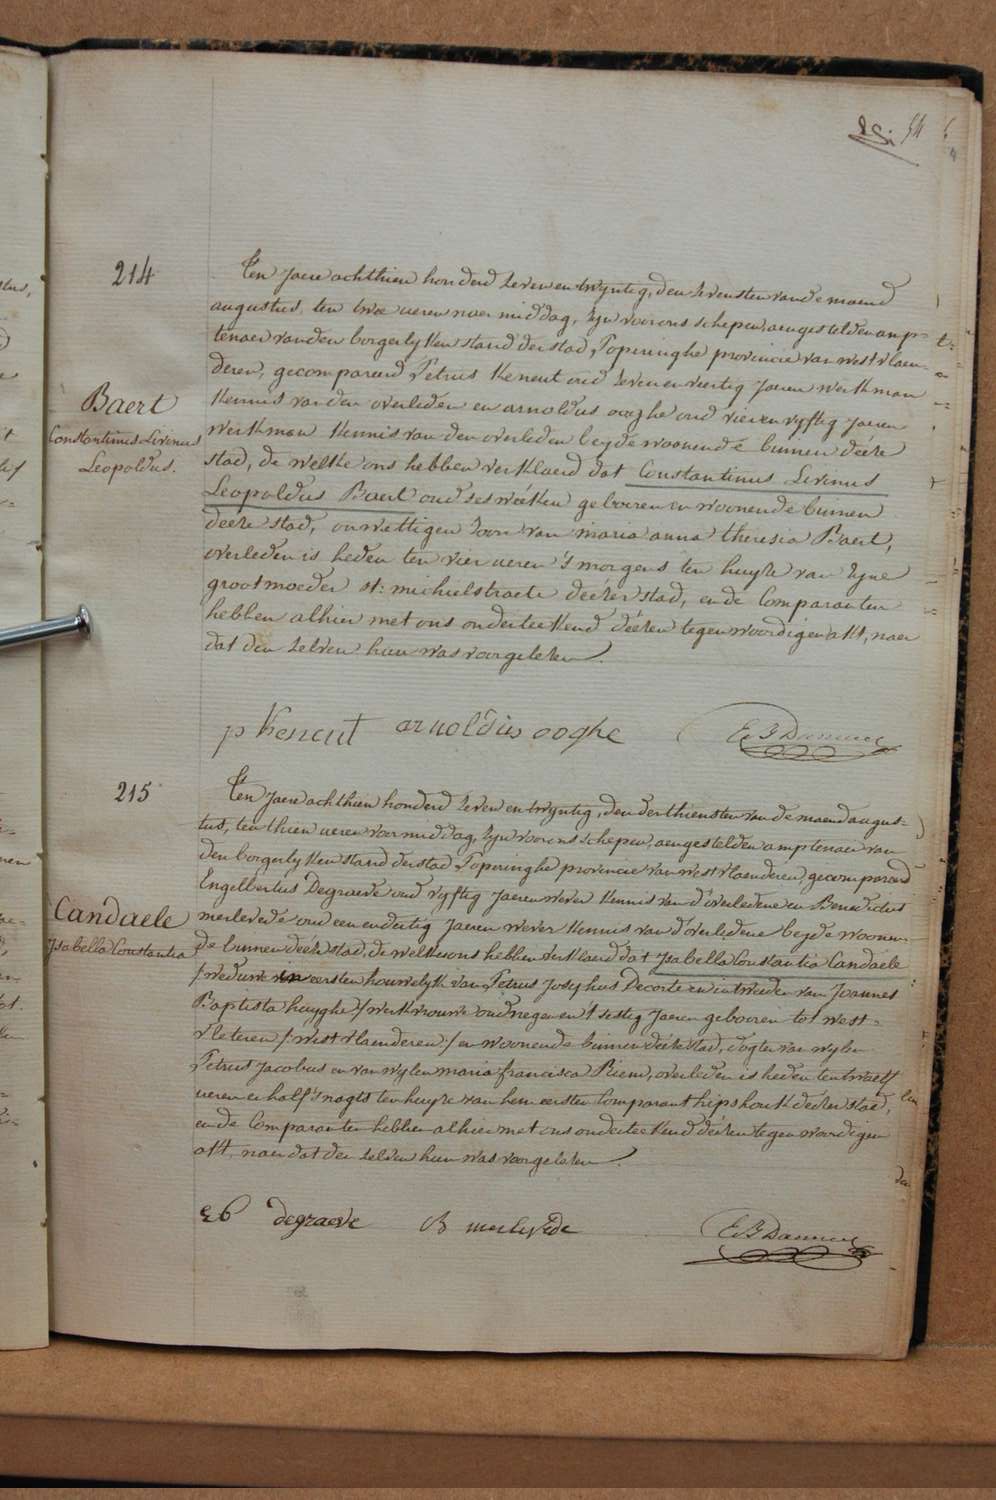 54
214
Ten jaere achthien honderd zeven en twyntig, den zevensten van de maend
augustus, ten twee ueren naer middag, zyn voor ons schepen, aengestelden amp-
tenaer van den borgerlyken stand der stad Poperinghe provincie van westvlaen-
deren, gecompareerd Petrus Keneut oud zeven en veertig jaeren werkman
Baert
Constantinus Livinus
Leopoldus.
kennis van den overleden en arnoldus ooghe oud vier en vyftig jaeren
werkman kennis van den overleden beyde woonende binnen déeze
stad, de welke ons hebben verklaerd dat Constantinus Livinus
Leopoldus Baert oud ses wéeken gebooren en woonende binnen
deeze stad, onwettigen zoon van maria anna theresia Baert,
overleden is heden ten vier ueren 's morgens ten huyze van zyne
grootmoeder st: michielstraete déezer stad, en de Comparanten
hebben alhier met ons onderteekend déezen tegenwoordigen akt, naer
dat den zelven hun was voorgelezen.
p Keneut arnoldus ooghe
215
Ten jaere achthien honderd zeven en twyntig, den derthiensten van de maend augus-
tus, ten thien ueren voor middag, zyn voor ons schepen, aengestelden amptenaer van
den borgerlyken stand der stad Poperinghe provincie van westvlaenderen, gecompareerd
Engelbertus Degraeve oud vyftig jaeren wever kennis van d'overledene en Benedictus
Candaele
Isabella Constantia
merlevede oud een en dertig jaeren wever kennis van d'overledene beyde woonen-
de binnen deeze stad, de welke ons hebben verklaerd dat Isabella Constantia Candaele
/weduwe in eersten houwelyk van Petrus Josephus Decorte en in tweeden van Joannes
Baptista huyghe/ werkvrouwe oud negen en 't sestig jaeren gebooren tot west-
vleteren /: westvlaenderen :/ en woonende binnen déeze stad, dogter van wylen
Petrus Jacobus en van wylen maria francisca Riem, overleden is heden ten twaelf
ueren en half 's nagts ten huyze van hem eersten Comparant hipshouk déezer stad,
en de Comparanten hebben alhier met ons onderteekend déezen tegenwoordigen
akt, naer dat den zelven hun was voorgelezen.
degraeve B merlevede